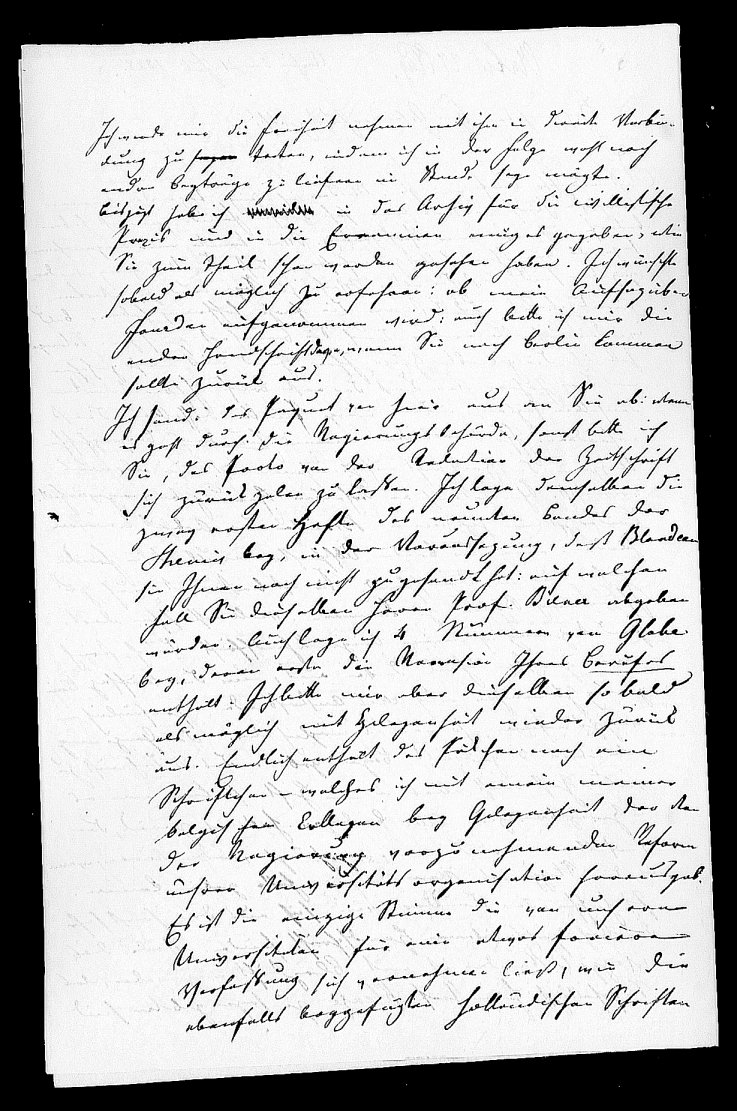 Ich werde mir die Freiheit nehmen mit ihm in directe Verbin-
dung zu treten, indem ich in der Folge wohl noch
andre Beyträge zu liefern im Stande seyn mögte.
bis jezt habe ich in das Archiv für die civilistische
Praxis und in die einiges gegeben, wie
Sie zum Theil schon werden gesehen haben. Ich wünschte
sobald als möglich zu erfahren: ob mein Aufsaz über
aufgenommen wird; auch bitte ich mir die
andre Handschrift wenn Sie nach Berlin kommen
sollte zurück aus.
Ich sende das Paquet von hier aus an Sie ab: wenn
es geht durch die Regierungsbehörde, sonst bitte ich
Sie, das Porto von der Redaction der Zeitschrift
sich zurück zalen zu lassen. Ich lege demselben die
zwey ersten Hefte des neunten Bandes der
Themis bey, in der Voraussezung, daß Blondeau
sie Ihnen noch nicht zugesandt hat: auf welchen
Fall Sie dieselben Herrn Prof. abgeben
würden. Auch lege ich 4 Nummern vom Globe
bey, deren erste die Recension Ihres Berufes
enthält. Ich bitte mir aber dieselben so bald
als möglich mit Gelegenheit wieder zurück
aus. Endlich enthält das Päckchen noch ein
Schriftchen – welches ich mit einem meiner
belgischen Collegen bey Gelegenheit der von
der Regierung vorzunehmenden Reform
unsrer Universitätsorganisation herausgab.
Es ist die einzige Stimme die von unseren
Universitäten für eine etwas freiere
Verfassung sich vernehmen ließ, wie die
ebenfalls beygefügten holländischen Schriften